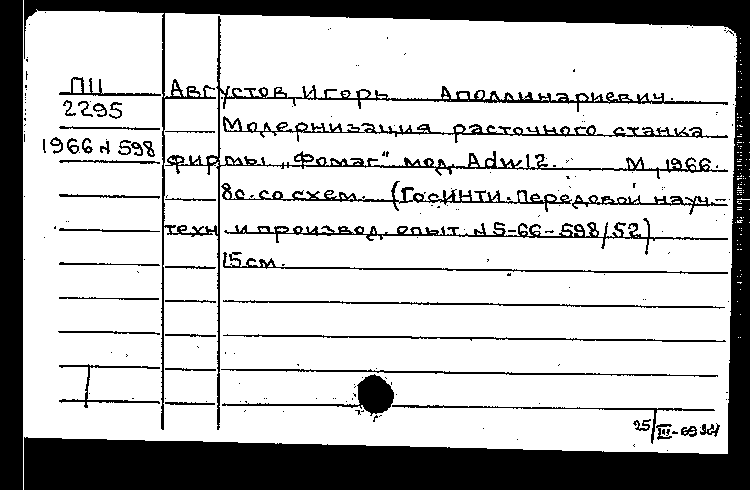 ПII Августов, Игорь Аполлинариевич.
2295 Модернизация расточного станка
1966 № 598 фирмы „Фомаг" мод. Adw12. М., 1966.
8с. со схем. (ГосИНТИ. Передовой науч.-
техн. и производ. опыт. № 5-66-598/52)
15 см.
25/III-69